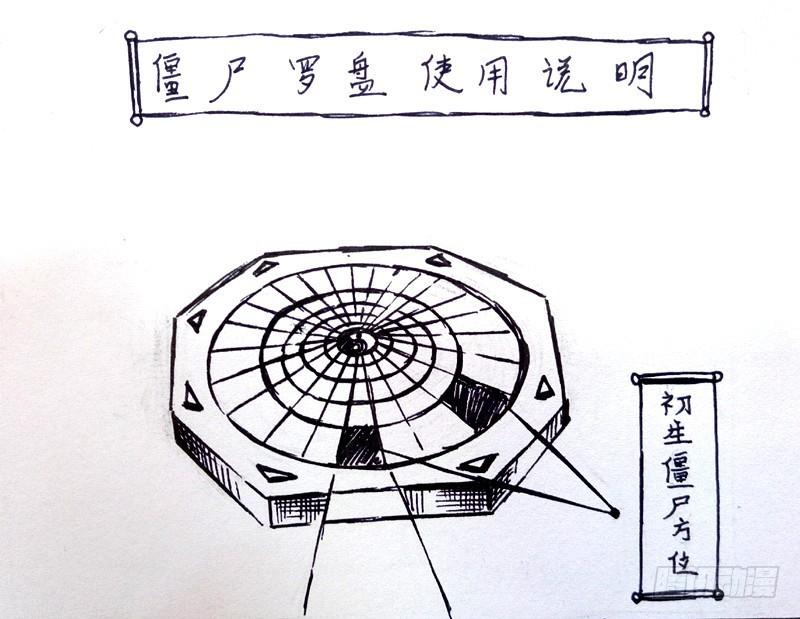 僵尸罗盘使用说明
初生僵尸方位
腾讯动漫